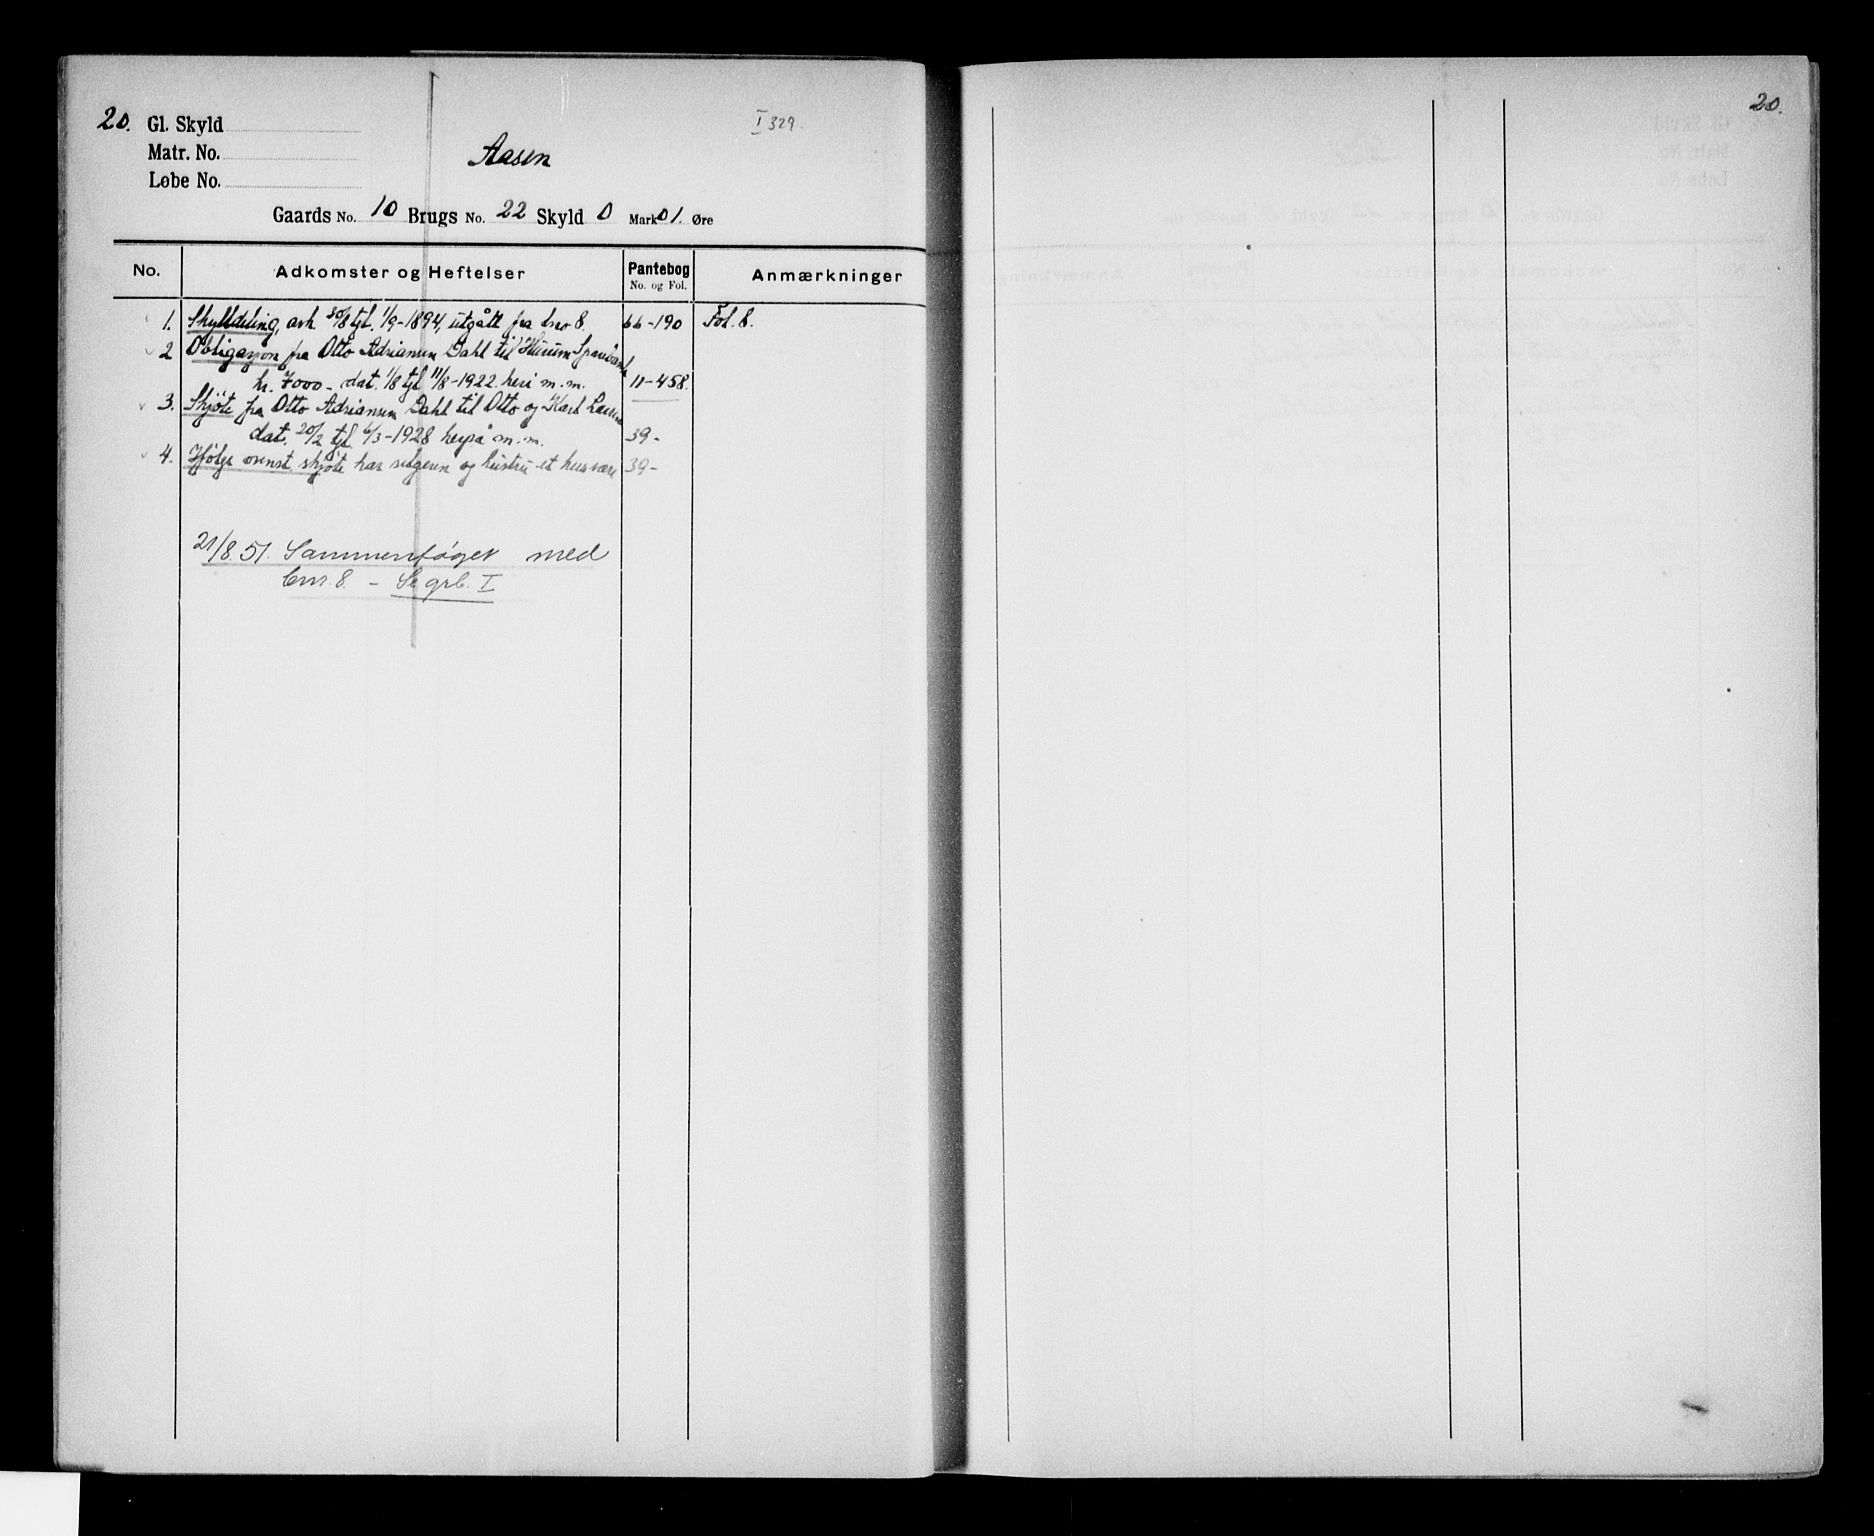 20. Gl. Skyld
I 329.
Matr. No.
Aasen
Løbe No.
Gaards No. 10 Brugs No. 22 Skyld 0 Mark 01. Øre
No. Adkomster og Heftelser Pantebog No. og Fol. Anmærkninger
1. Skylddeling, avh. 30/8 tgl. 1/9-1894, utgått fra bno 8. 66-190 Fol. 8.
2 Obligasjon fra Otto Adriansen Dahl til Hurum Sparebank
kr. 7000 - dat. 1/8 tgl 11/8-1922. heri m.m. 11-458.
3. Skjöte fra Otto Adriansen Dahl til Otto og Karl Larsen
dat. 20/2 tgl. 6/3-1928 herpå m.m. 39-
4. Ifölge ovenst. skjöte har selgeren og hustru et husvære 39-
21/8.51. Sammenføyet med
bnr. 8. - Se grb. I
20.